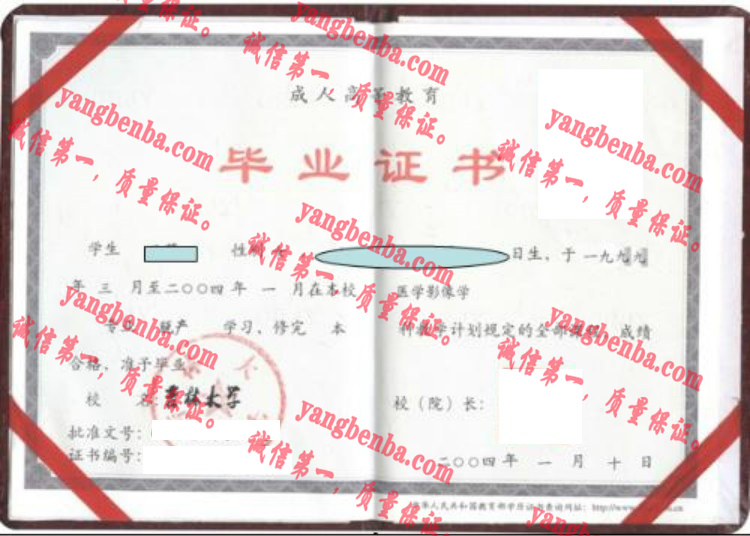 成人高等教育
毕业证书
学生 性别 日生，于一九九九
年 三 月至二〇〇四年 一 月在本校 医学影像学
专业 脱产 学习，修完 本 科教学计划规定的全部课程，成绩
合格，准予毕业
校 名 吉林大学
校（院）长：
批准文号：
证书编号：
二〇〇四年 一 月 十 日
中华人民共和国教育部学历证书查询网址：http://www.
yangbenba.com
诚信第一，质量保证。
yangbenba.com
诚信第一，质量保证。
yangbenba.com
诚信第一，质量保证。
yangbenba.com
诚信第一，质量保证。
yangbenba.com
诚信第一，质量保证。
yangbenba.com
诚信第一，质量保证。
yangbenba.com